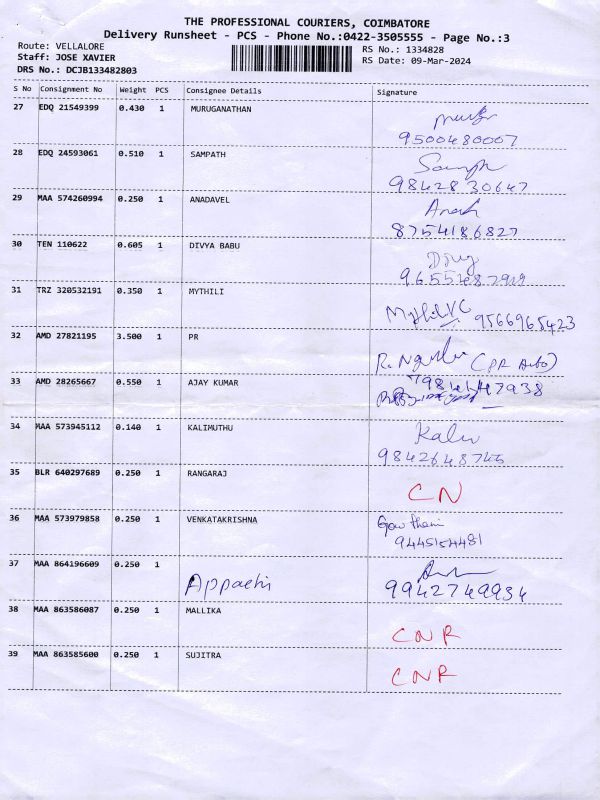 THE PROFESSIONAL COURIERS, COIMBATORE
Delivery Runsheet - PCS - Phone No.:0422-3505555 - Page No.:3
Route: VELLALORE
RS No.: 1334828
Staff: JOSE XAVIER
RS Date: 09-Mar-2024
DRS No.: DCJB133482803
S No Consignment No Weight PCS Consignee Details Signature
27 EDQ 21549399 0.430 1 MURUGANATHAN
9500480007
28 EDQ 24593061 0.510 1 SAMPATH
98428 30647
29 MAA 574260994 0.250 1 ANADAVEL
8754186827
30 TEN 110622 0.605 1 DIVYA BABU
31 TRZ 320532191 0.350 1 MYTHILI
9566965423
32 AMD 27821195 3.500 1 PR
(PR Auto)
33 AMD 28265667 0.550 1 AJAY KUMAR
34 MAA 573945112 0.140 1 KALIMUTHU
Kalu
9842648745
35 BLR 640297689 0.250 1 RANGARAJ
CN
36 MAA 573979858 0.250 1 VENKATAKRISHNA
Gowthami
9445154481
37 MAA 864196609 0.250 1
Appachi
9942749934
38 MAA 863586087 0.250 1 MALLIKA
CNR
39 MAA 863585600 0.250 1 SUJITRA
CNR